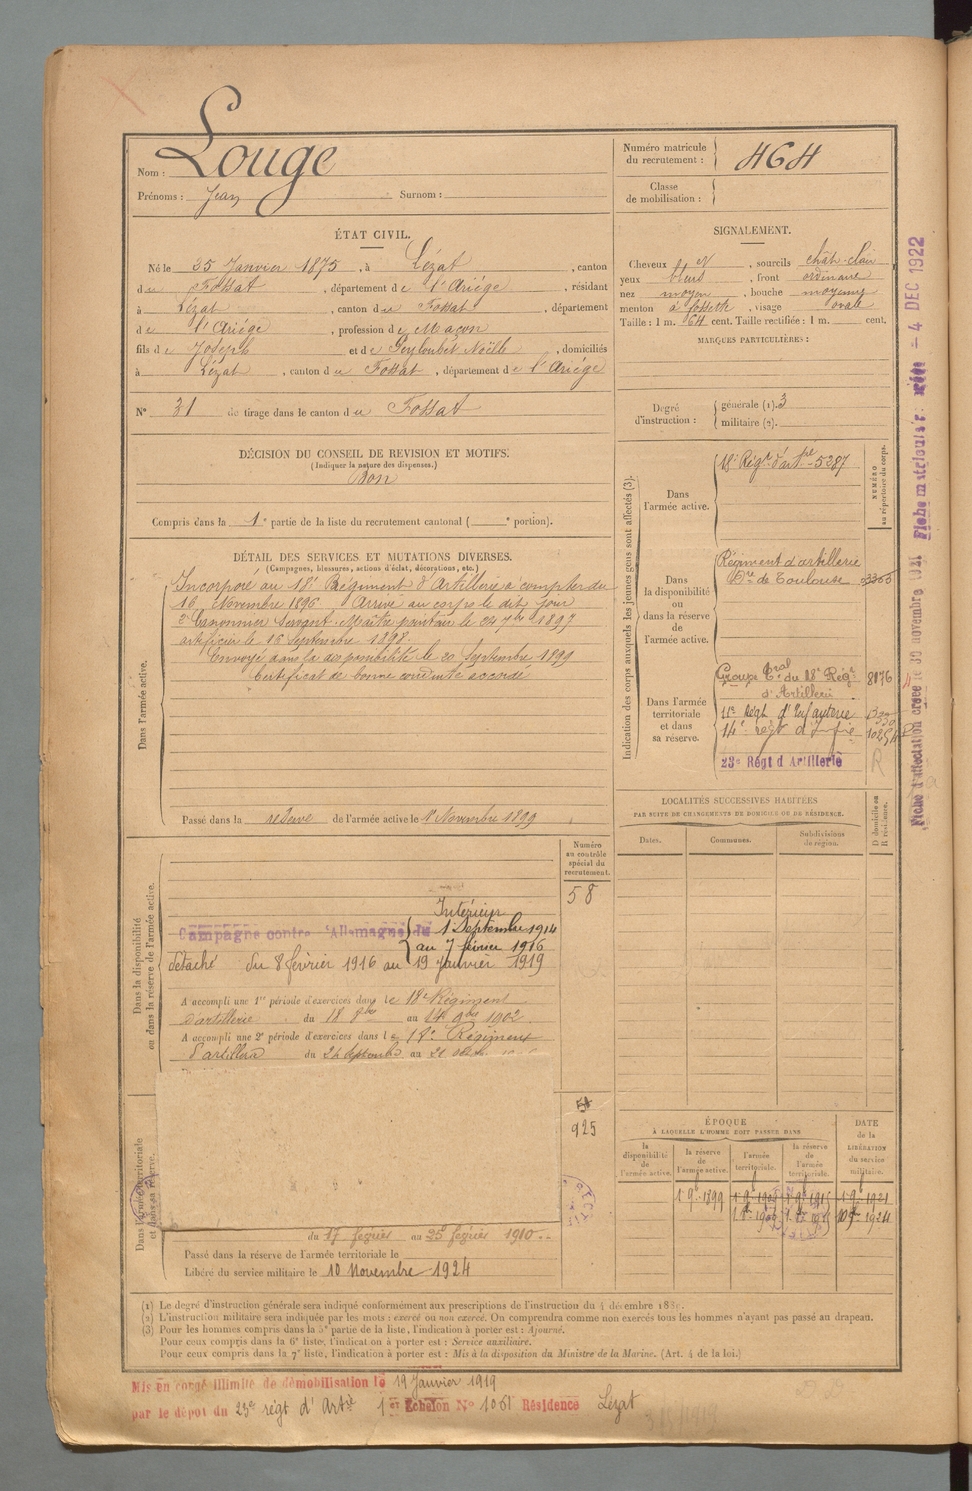 Nom : Louge
Prénoms : Jean Surnom :
Numéro matricule du recrutement : 464
Classe de mobilisation :
ÉTAT CIVIL.
Né le 25 Janvier 1875, à Lézat, canton
du Fossat, département de l'Ariége, résidant
à Lézat, canton du Fossat, département
de l'Ariége, profession de Maçon
fils de Joseph et de Noëlle, domiciliés
à Lézat, canton du Fossat, département de l'Ariége
N° 31 de tirage dans le canton du Fossat
SIGNALEMENT.
Cheveux , sourcils chât-clair
yeux bleus, front ordinaire
nez moyen, bouche moyenne
menton à fossette, visage ovale
Taille : 1 m. 64 cent. Taille rectifiée : 1 m. cent.
MARQUES PARTICULIÈRES :
Degré d'instruction : générale (1). 3
militaire (2).
DÉCISION DU CONSEIL DE REVISION ET MOTIFS.
(Indiquer la nature des dispenses.)
Bon
Compris dans la 1e partie de la liste du recrutement cantonal ( e portion).
DÉTAIL DES SERVICES ET MUTATIONS DIVERSES.
(Campagnes, blessures, actions d'éclat, décorations, etc.)
Dans l'armée active.
Incorporé au 18e Régiment d'Artillerie à compter du
16 Novembre 1896 Arrivé au corps le dit jour
2e Canonnier Servant. Maître pointeur le 24 7bre 1897
artificier le 16 Septembre 1898.
Envoyé dans la disponibilité le 20 Septembre 1899
Certificat de bonne conduite accordé
Passé dans la réserve de l'armée active le 1 Novembre 1899
Indication des corps auxquels les jeunes gens sont affectés (3).
NUMÉRO au répertoire du corps.
Dans l'armée active.
18e Régt d'artrie 5287
Dans la disponibilité ou dans la réserve de l'armée active.
Régiment d'artillerie
de Toulouse 3365
Dans l'armée territoriale et dans sa réserve.
Groupe Tral du 18e Régt 8176
d'Artillerie
11e Régt d'Infanterie
14e régt d'Infie
23e Régt d'Artillerie
R
LOCALITÉS SUCCESSIVES HABITÉES
PAR SUITE DE CHANGEMENTS DE DOMICILE OU DE RÉSIDENCE.
Dates. Communes. Subdivisions de région. D domicile ou R résidence.
Dans la disponibilité ou dans la réserve de l'armée active.
Numéro au contrôle spécial du recrutement.
58
Intérieur
Campagne contre l'Allemagne du 1 Septembre 1914
au 7 février 1916
détaché du 8 février 1916 au 19 Janvier 1919
A accompli une 1re période d'exercices dans le 18e Régiment
d'artillerie du 18 8bre au 14 9bre 1902
A accompli une 2e période d'exercices dans le 18e Régiment
d'artillerie du 24 Septembre au 21
925
Dans l'armée territoriale et dans sa réserve.
du 17 février au 25 février 1910
Passé dans la réserve de l'armée territoriale le
Libéré du service militaire le 10 Novembre 1924
ÉPOQUE
À LAQUELLE L'HOMME DOIT PASSER DANS
la disponibilité de l'armée active. la réserve de l'armée active. l'armée territoriale. la réserve de l'armée territoriale.
DATE de la LIBÉRATION du service militaire.
1 9b 1899 1 9b 1 9b 1 9b 1921
1924
(1) Le degré d'instruction générale sera indiqué conformément aux prescriptions de l'instruction du 4 décembre
(2) L'instruction militaire sera indiquée par les mots : exercé ou non exercé. On comprendra comme non exercés tous les hommes n'ayant pas passé au drapeau.
(3) Pour les hommes compris dans la 5e partie de la liste, l'indication à porter est : Ajourné.
Pour ceux compris dans la 6e liste, l'indication à porter est : Service auxiliaire.
Pour ceux compris dans la 7e liste, l'indication à porter est : Mis à la disposition du Ministre de la Marine. (Art. 4 de la loi.)
Mis en congé illimité de démobilisation le 19 Janvier 1919
par le dépot du 23e régt d'Artie 1er Echelon N° 1061 Résidence Lézat
Fiche d'affectation créée le 30 novembre Fiche matriculaire 4 DEC 1922